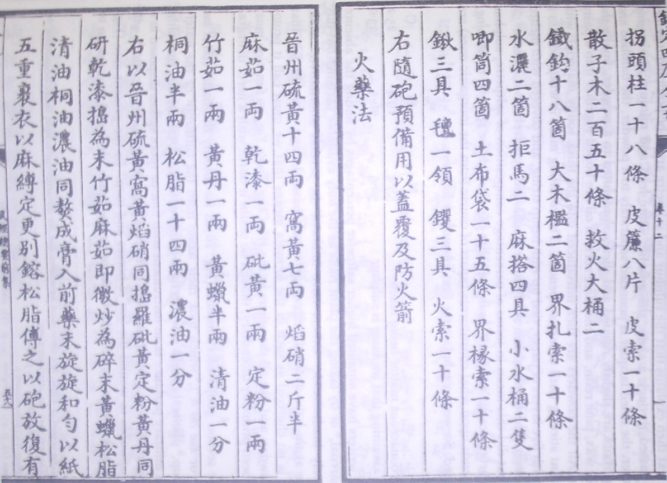 拐頭柱一十八條　皮簾八片　皮索一十條
散子木二百五十條　救火大桶二
鐵鈎十八箇　大木檻二箇　界扎索一十條
水濃二箇　拒馬二　麻搭四具　小水桶二隻
唧筒四箇　土布袋一十五條　界椽索一十條
鍬三具　氊一領　钁三具　火索一十條
右隨砲預備用以蓋覆及防火箭
火藥法
晉州硫黃十四兩　窩黃七兩　焰硝二斤半
麻茹一兩　乾漆一兩　砒黃一兩　定粉一兩
竹茹一兩　黃丹一兩　黃蠟半兩　清油一分
桐油半兩　松脂一十四兩　濃油一分
右以晉州硫黃窩黃焰硝同搗羅砒黃定粉黃丹同
研乾漆搗為末竹茹麻茹即微炒為碎末黃蠟松脂
清油桐油濃油同熬成膏入前藥末旋旋和匀以紙
五重裹衣以麻縛定更別鎔松脂傅之以砲放復有